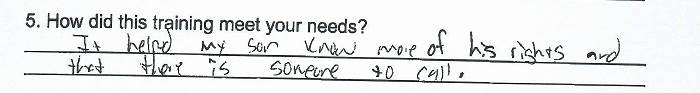 5. How did this training meet your needs?
It helped my son know more of his rights and
that there is someone to call.